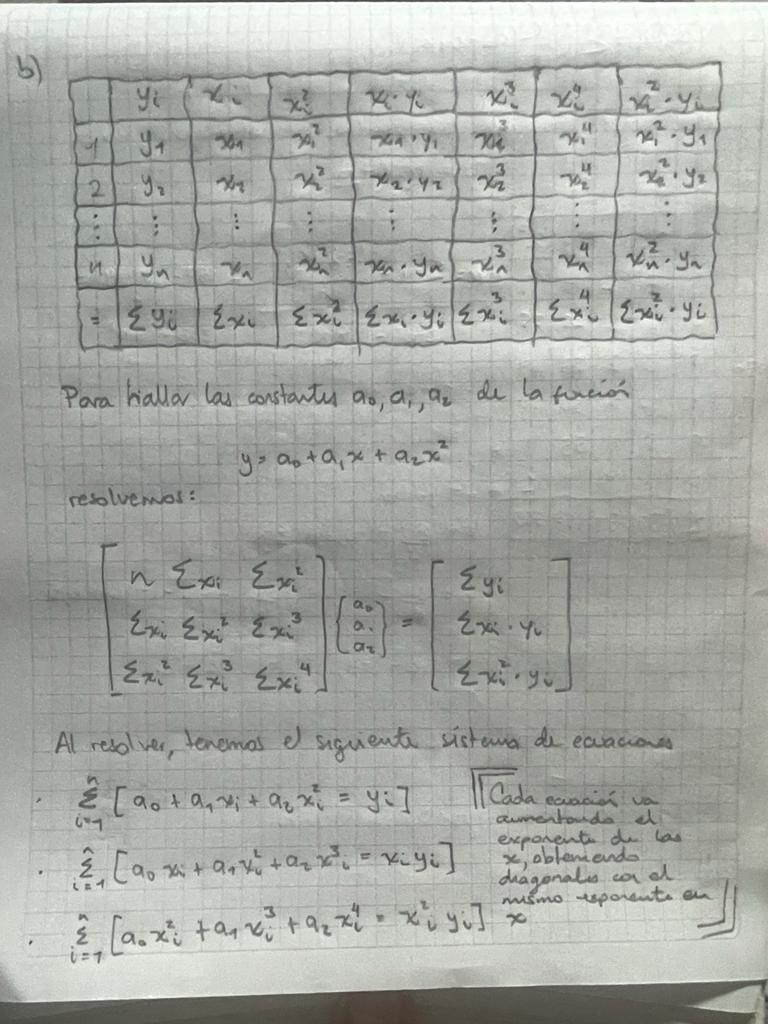 b)
yi xi xi² xi·yi xi³ xi⁴ xi²·yi
1 y1 x1 x1² x1·y1 x1³ x1⁴ x1²·y1
2 y2 x2 x2² x2·y2 x2³ x2⁴ x2²·y2
⋮ ⋮ ⋮ ⋮ ⋮ ⋮ ⋮ ⋮
n yn xn xn² xn·yn xn³ xn⁴ xn²·yn
= Σyi Σxi Σxi² Σxi·yi Σxi³ Σxi⁴ Σxi²·yi
Para hallar las constantes a0, a1, a2 de la función
y = a0 + a1x + a2x²
resolvemos:
[ n Σxi Σxi² ] [ a0 ] [ Σyi ]
[ Σxi Σxi² Σxi³ ] [ a1 ] = [ Σxi·yi ]
[ Σxi² Σxi³ Σxi⁴ ] [ a2 ] [ Σxi²·yi ]
Al resolver, tenemos el siguiente sistema de ecuaciones
· Σ_{i=1}^{n} [a0 + a1xi + a2xi² = yi]
· Σ_{i=1}^{n} [a0xi + a1xi² + a2x³i = xiyi]
· Σ_{i=1}^{n} [a0xi² + a1xi³ + a2xi⁴ = xi²yi]
Cada ecuación va
aumentando el
exponente de las
x, obteniendo
diagonales con el
mismo exponente en
x